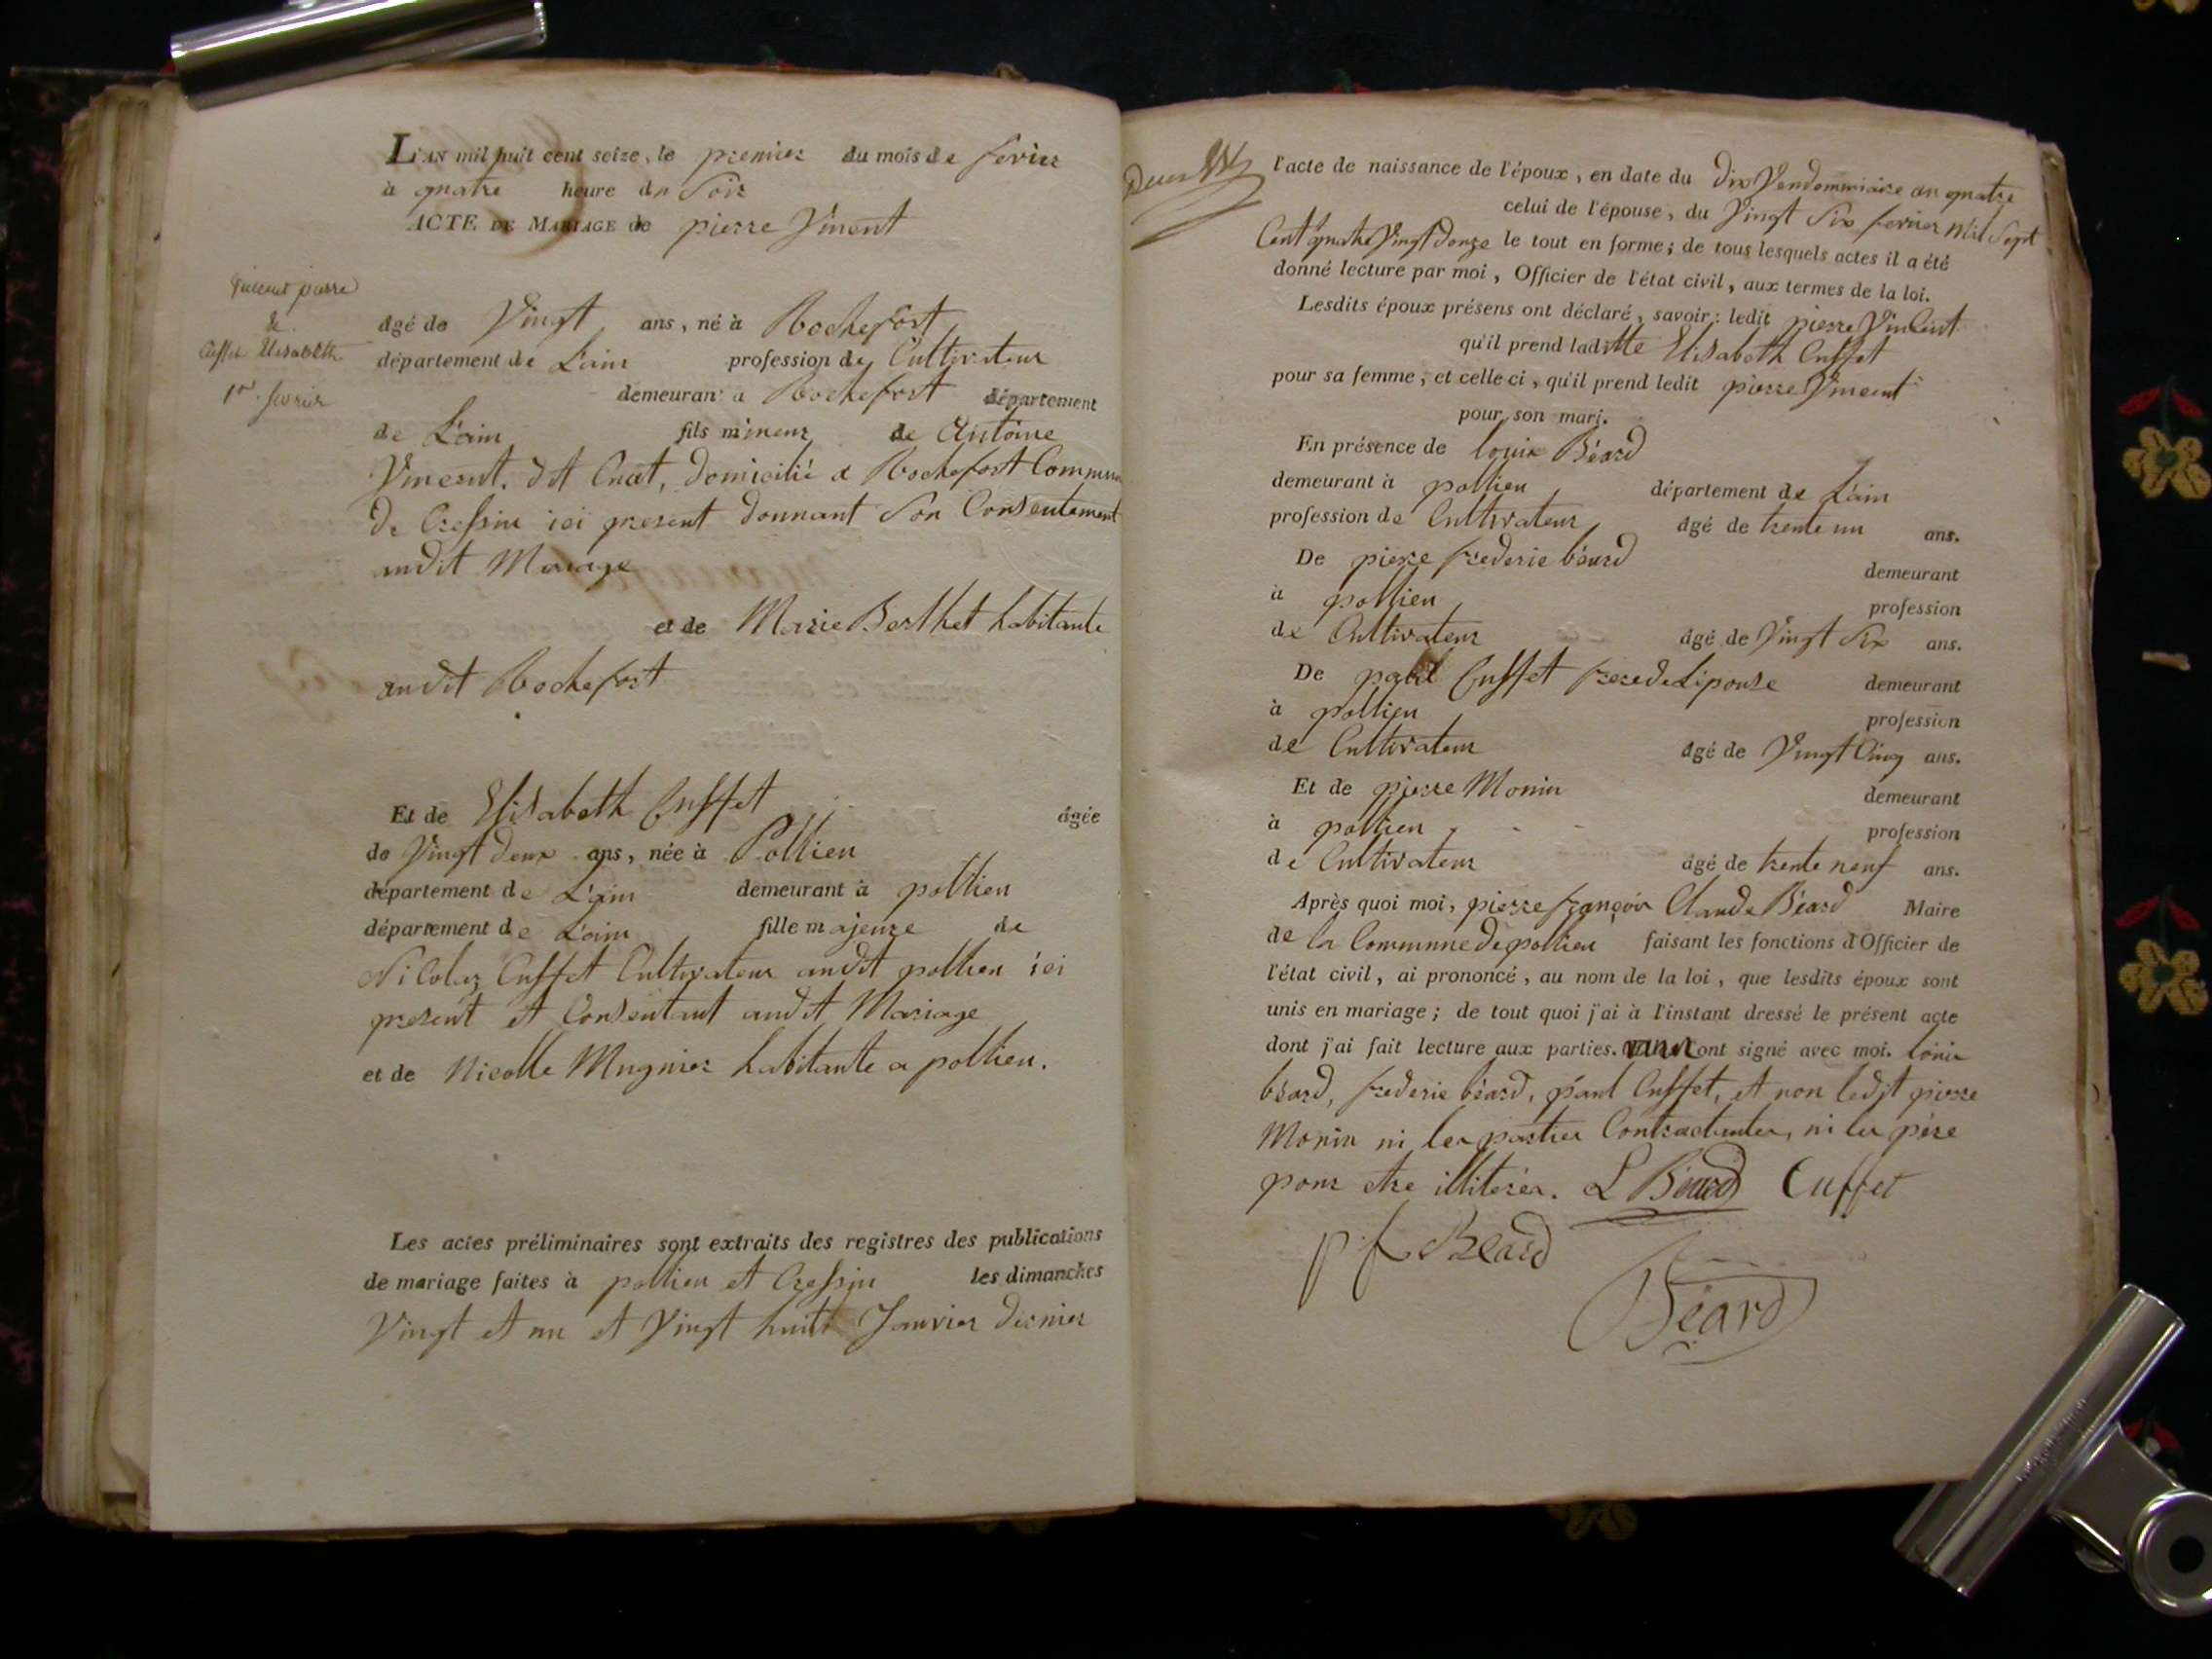 L'AN mil huit cent seize, le premier du mois de fevrier
à quatre heure du Soir
ACTE DE MARIAGE de pierre Vincent
Vincent pierre
&
Cuffet Elisabeth
1er. fevrier
âgé de Vingt ans, né à Rochefort
département de L'ain profession de Cultivateur
demeurant a Rochefort département
de L'ain fils mineur de Antoine
Vincent, dit Cuat, domicilié a Rochefort Commune
de Cressin ici present donnant Son Consentement
audit Mariage
et de Marie Berthet habitante
audit Rochefort
Et de Elisabeth Cuffet âgée
de Vingt deux ans, née à Pollieu
département de L'ain demeurant à pollieu
département de L'ain fille majeure de
Nicolas Cuffet Cultivateur audit pollieu ici
present et Consentant audit Mariage
et de Nicolle Mugnier habitante a pollieu.
Les actes préliminaires sont extraits des registres des publications
de mariage faites à pollieu et Cressin les dimanches
Vingt et un et Vingt huit Janvier dernier
l'acte de naissance de l'époux, en date du dix Vendemmiaire an quatre
celui de l'épouse, du Vingt Six fevrier Mil Sept
Cent quatre Vingt donze le tout en forme; de tous lesquels actes il a été
donné lecture par moi, Officier de l'état civil, aux termes de la loi.
Lesdits époux présens ont déclaré, savoir: ledit pierre Vincent
qu'il prend laditte Elisabeth Cuffet
pour sa femme, et celle ci, qu'il prend ledit pierre Vincent
pour son mari.
En présence de louis Béard
demeurant à pollieu département de L'ain
profession de Cultivateur âgé de trente un ans.
De pierre frederic béard demeurant
à pollieu profession
de Cultivateur âgé de Vingt Six ans.
De paul Cuffet frere de Lépouse demeurant
à pollieu profession
de Cultivateur âgé de Vingt Cinq ans.
Et de pierre Monin demeurant
à pollieu profession
de Cultivateur âgé de trente neuf ans.
Après quoi moi, pierre françois Claude Béard Maire
de la Commune de pollieu faisant les fonctions d'Officier de
l'état civil, ai prononcé, au nom de la loi, que lesdits époux sont
unis en mariage; de tout quoi j'ai à l'instant dressé le présent acte
dont j'ai fait lecture aux parties. ont signé avec moi. louis
béard, frederic béard, paul Cuffet, et non ledit pierre
Monin ni les parties Contractantes, ni les père
pour etre illiterés. L Béard Cuffet
p f Béard
Béard